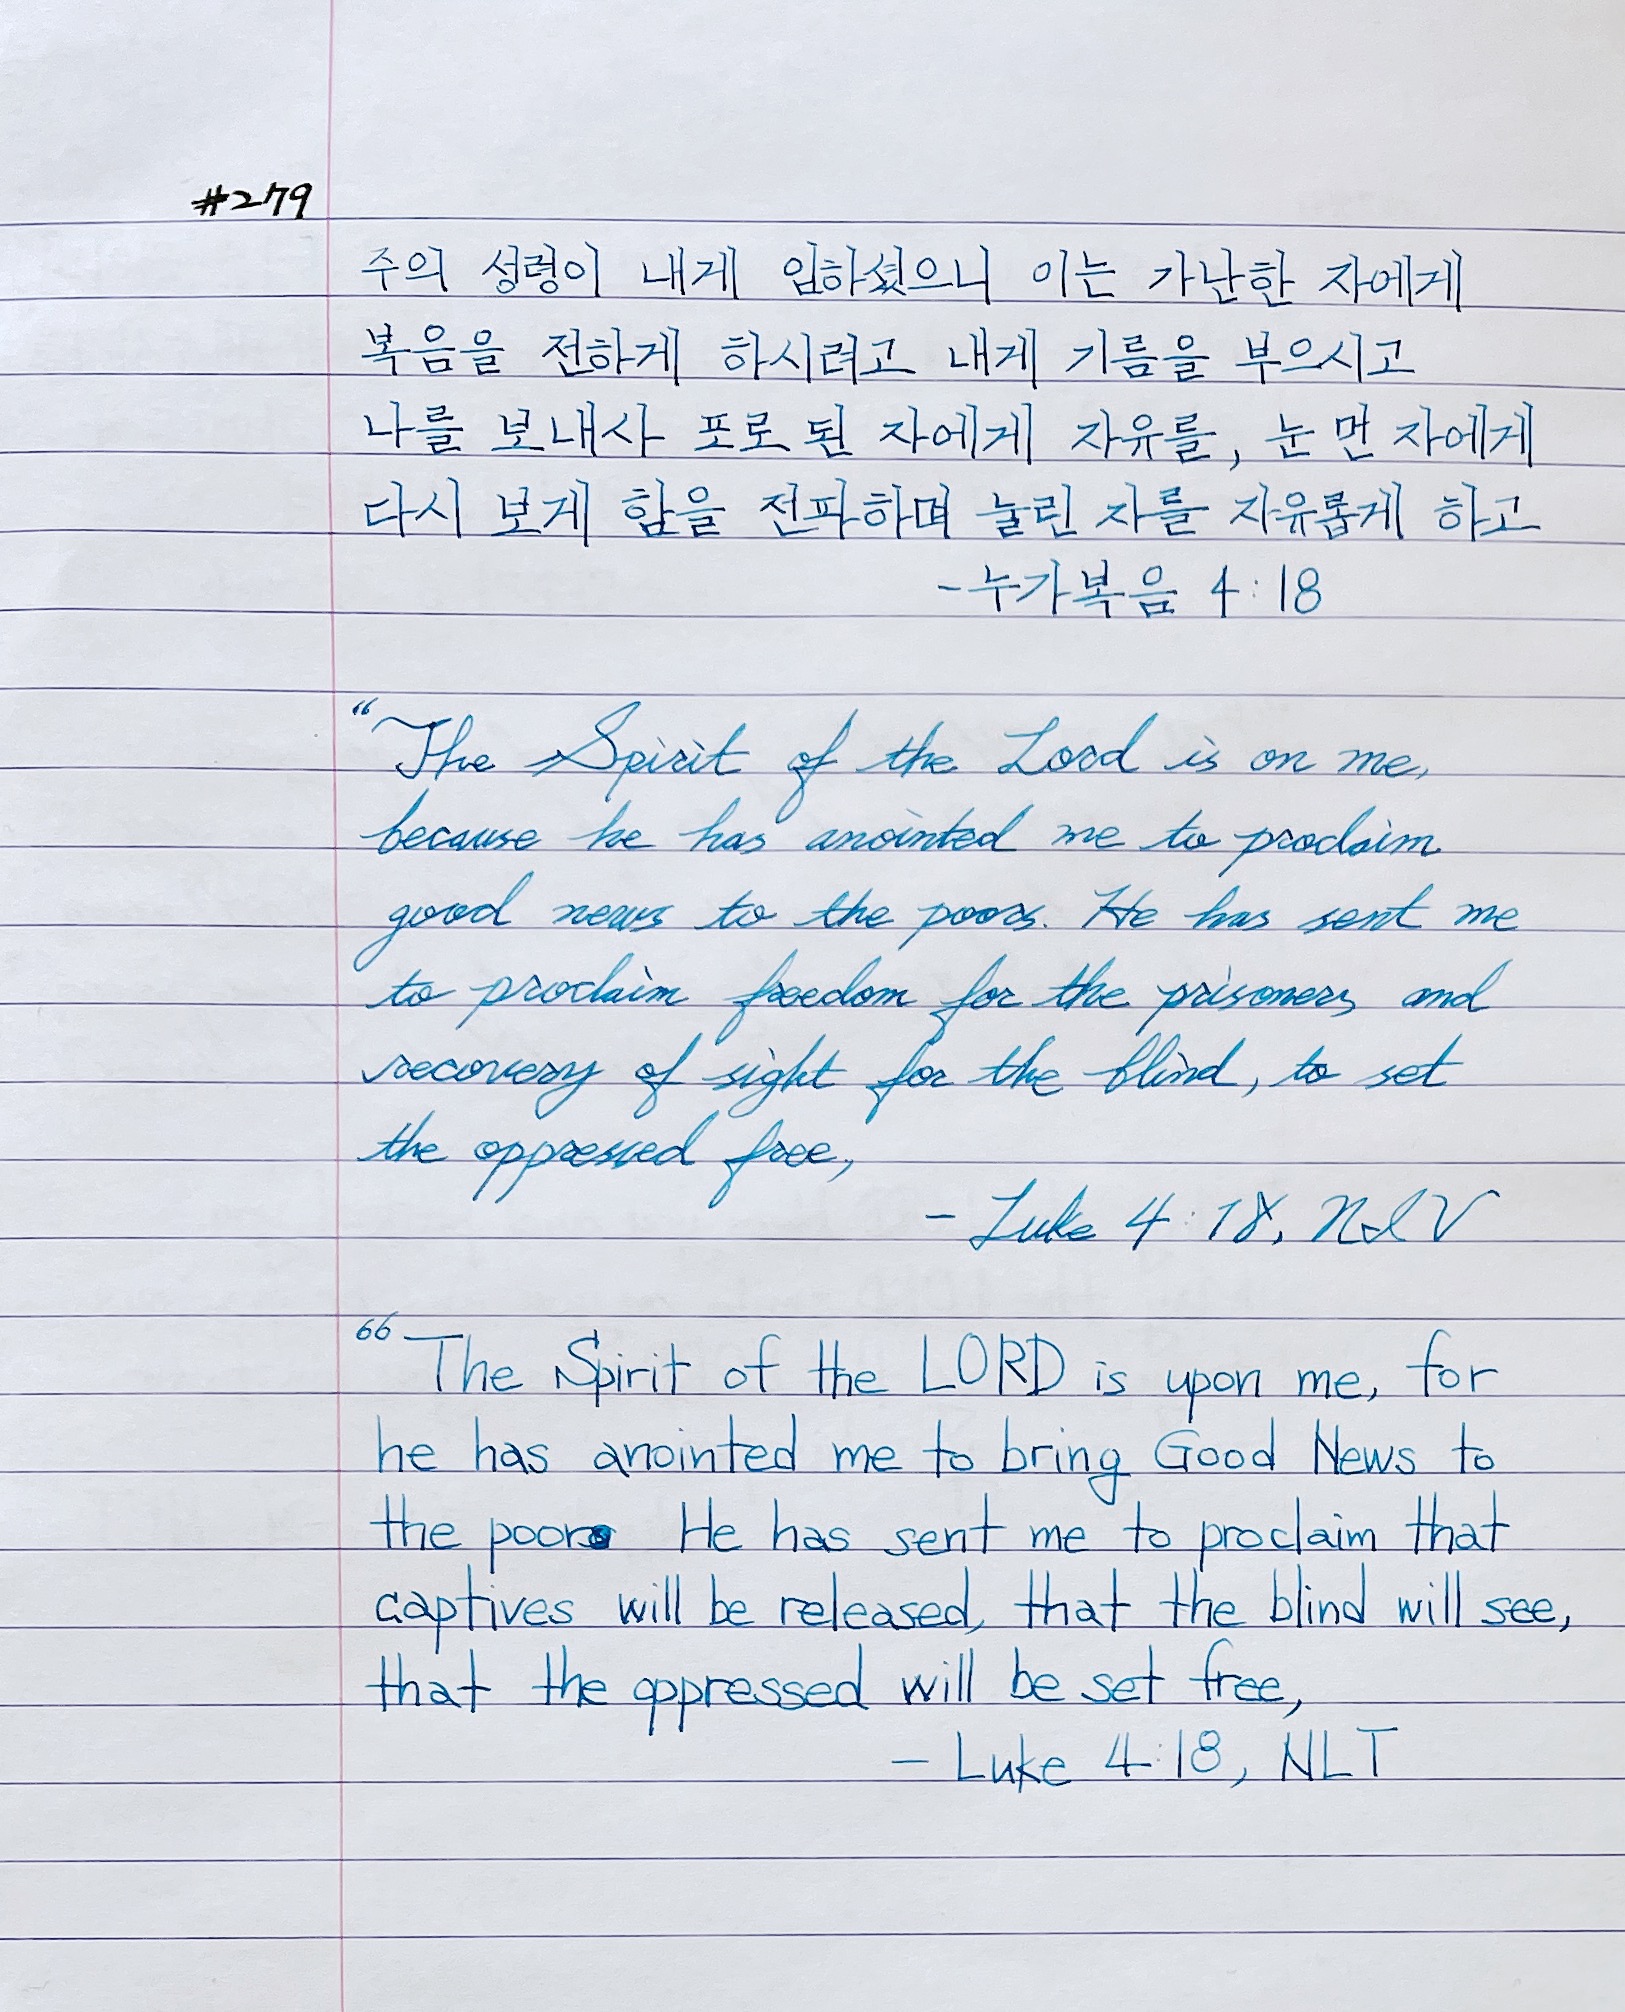 #279
주의 성령이 내게 임하셨으니 이는 가난한 자에게
복음을 전하게 하시려고 내게 기름을 부으시고
나를 보내사 포로 된 자에게 자유를, 눈 먼 자에게
다시 보게 함을 전파하며 눌린 자를 자유롭게 하고
-누가복음 4:18
"The Spirit of the Lord is on me,
because he has anointed me to proclaim
good news to the poor. He has sent me
to proclaim freedom for the prisoners and
recovery of sight for the blind, to set
the oppressed free,
- Luke 4:18, NIV
"The Spirit of the LORD is upon me, for
he has anointed me to bring Good News to
the poor. He has sent me to proclaim that
captives will be released, that the blind will see,
that the oppressed will be set free,
- Luke 4:18, NLT